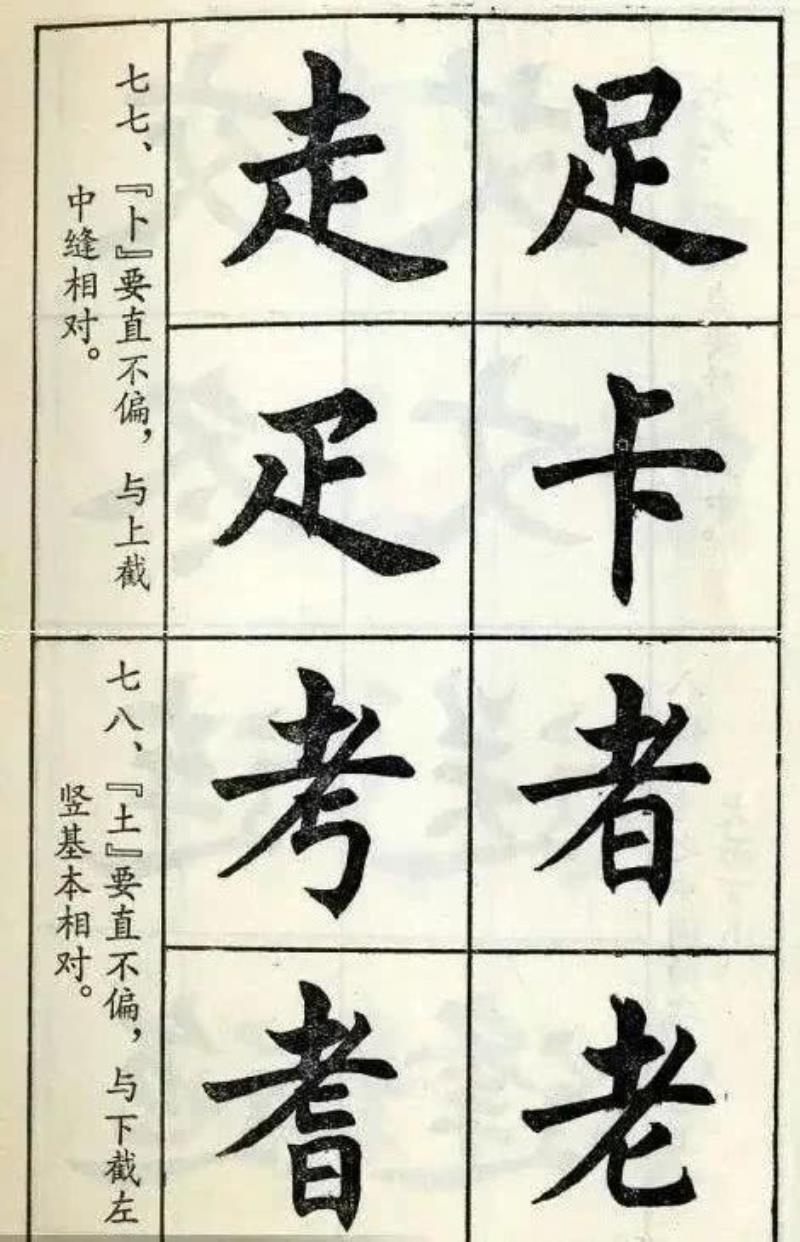 足
卡
走
疋
七七、『卜』要直不偏，与上截
中缝相对。
者
老
考
耆
七八、『土』要直不偏，与下截左
竖基本相对。